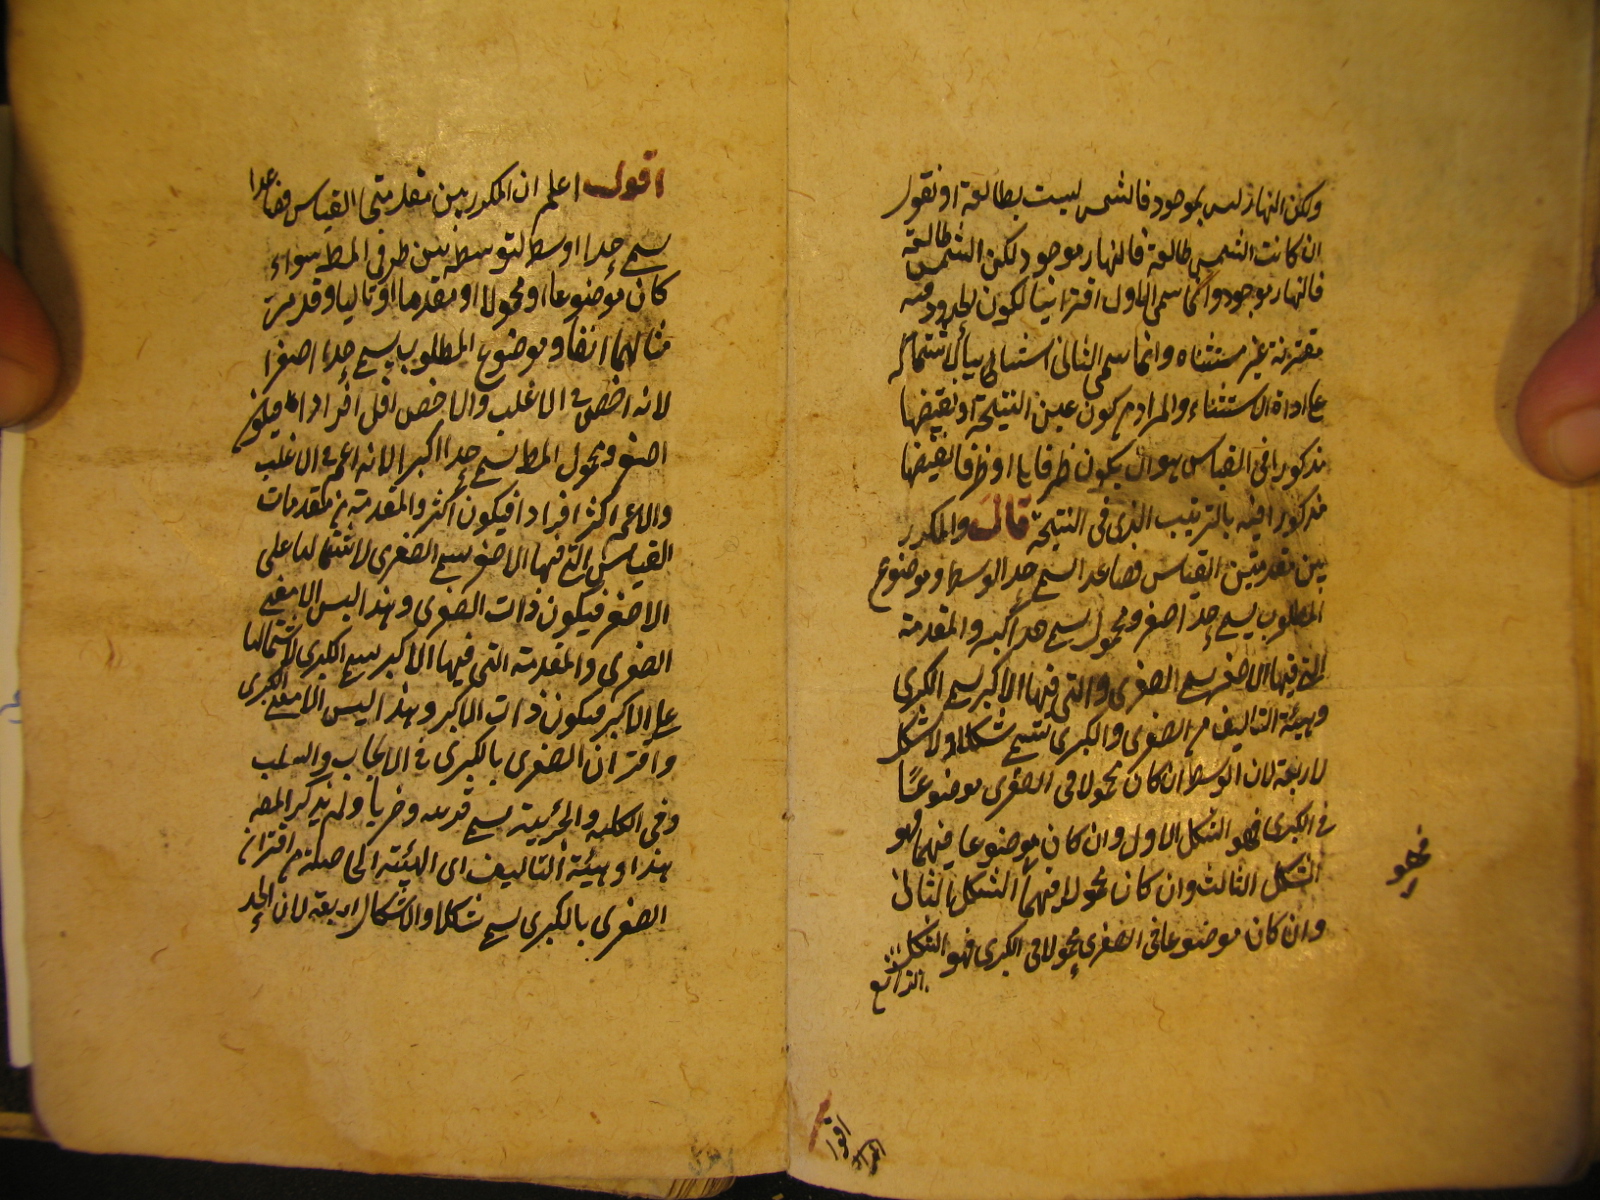 ولكن النهار ليس بموجود فالشمس ليست بطالعة او نقول
ان كانت الشمس طالعة فالنهار موجود لكن الشمس طالعة
فالنهار موجود وانما سمى الاول اقترانيا لكون الحدود فيه
مقترنة غير مستثناه وانما سمى الثانى استثنائى لاشتماله
على اداة الاستثناء والمراد من كون عين النتيجة او نقيضها
مذكورا فى القياس هو ان يكون طرفاها او طرفا نقيضها
مذكورا فيه بالترتيب الذى فى النتيجة قال والمكرر
بين مقدمتين القياس فصاعدا يسمى حد الوسط وموضوع
المطلوب يسمى حد اصغر ومحمول يسمى حد اكبر والمقدمة
التى فيها الاصغر يسمى الصغرى والتى فيها الاكبر يسمى الكبرى
وهيئة التاليف من الصغرى والكبرى تسمى شكلا والاشكل
لاربعة لان الوسط ان كان محمولا فى الصغرى موضوعًا
فى الكبرى فهو الشكل الاول وان كان موضوعا فيهما فهو
الشكل الثالث وان كان محمولا فيهما الشكل الثانى
فهو
وان كان موضوعا فى الصغرى محمولا فى الكبرى فهو الشكل
الرابع
اقول
اقول اعلم ان المكرر بين مقدمتى القياس فصاعدا
يسمى حدا اوسط لتوسطه بين طرفى المط سواء
كان موضوعا او محمولا او مقدما او تاليا وقد مر
مثالهما انفا وموضوع المطلوب يسمى حدا اصغرا
لانه اخص فى الاغلب والاخص اقل افرادا فيكون
اصغر ومحمول المط يسمى حدا اكبر الانه اعم فى الاغلب
والاعم اكثر افرادا فيكون اكثر والمقدمة من مقدمات
القياس التى فيها الاصغر يسمى الصغرى لاشتمالها على
الاصغر فيكون ذات الصغرى وهذا ليس الا معنى
الصغرى والمقدمة التى فيها الاكبر يسمى الكبرى لاشتمالها
على الاكبر فيكون ذات الاكبر وهذا ليس الا معنى الكبرى
واقتران الصغرى بالكبرى فى الايجاب والسلب
وفى الكلية والجزئية يسمى قرينة وضربا ولم يذكر المصه
هذا وهيئة التاليف اى الهيئة الحاصلة من اقتران
الصغرى بالكبرى يسمى شكلا والاشكال اربعة لان الحد